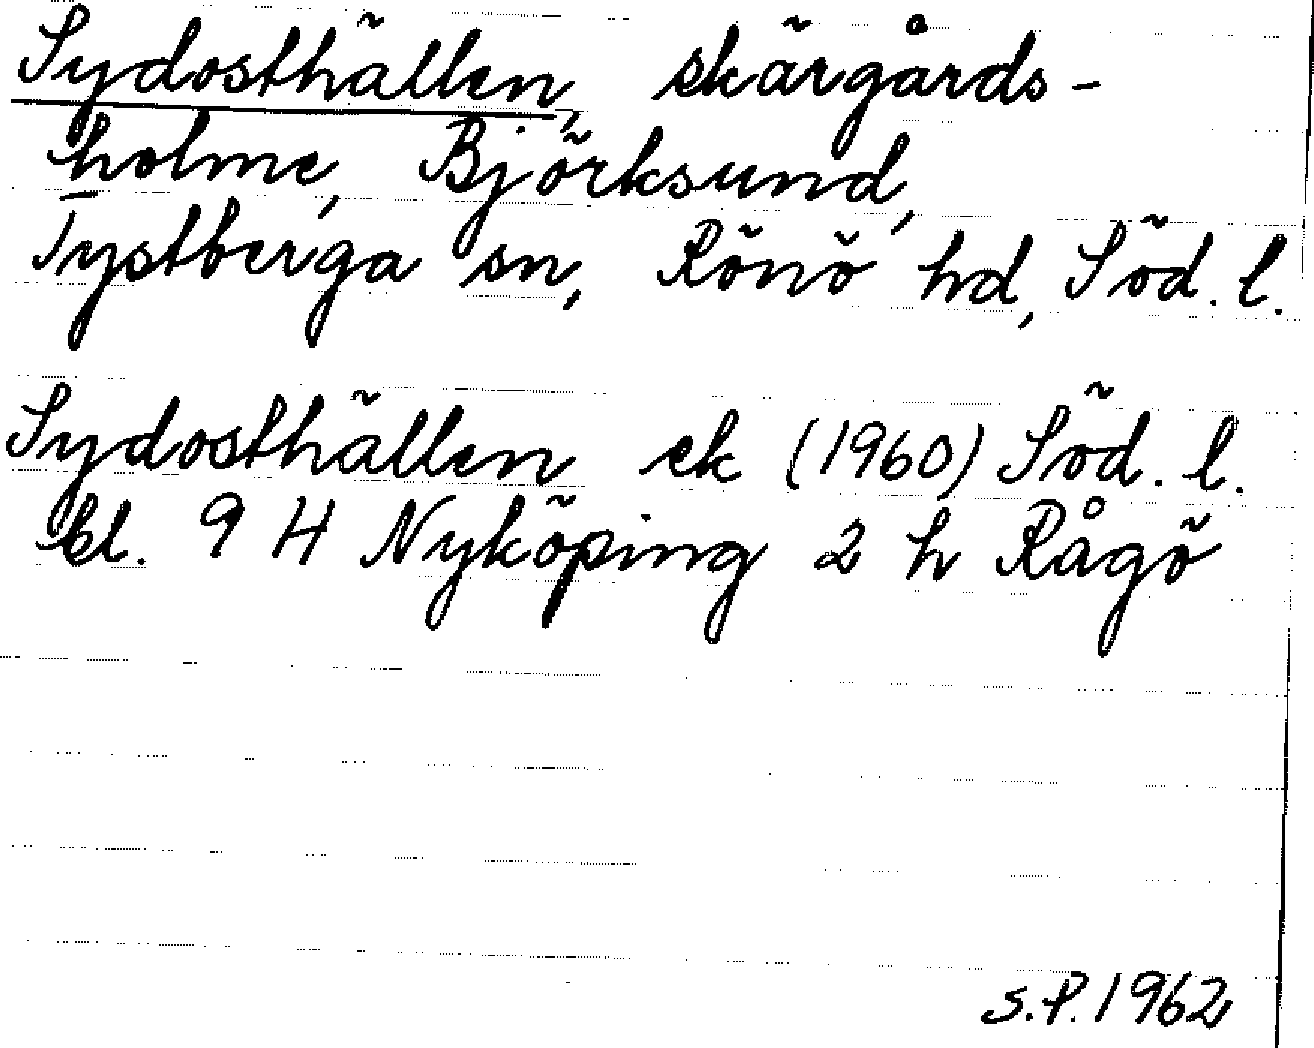 Sydosthällen, skärgårds-
holme, Björksund,
Tystberga sn, Rönö hd, Söd. l.
Sydosthällen ek (1960) Söd. l.
bl. 9 H Nyköping 2 h Rågö
S.P. 1962